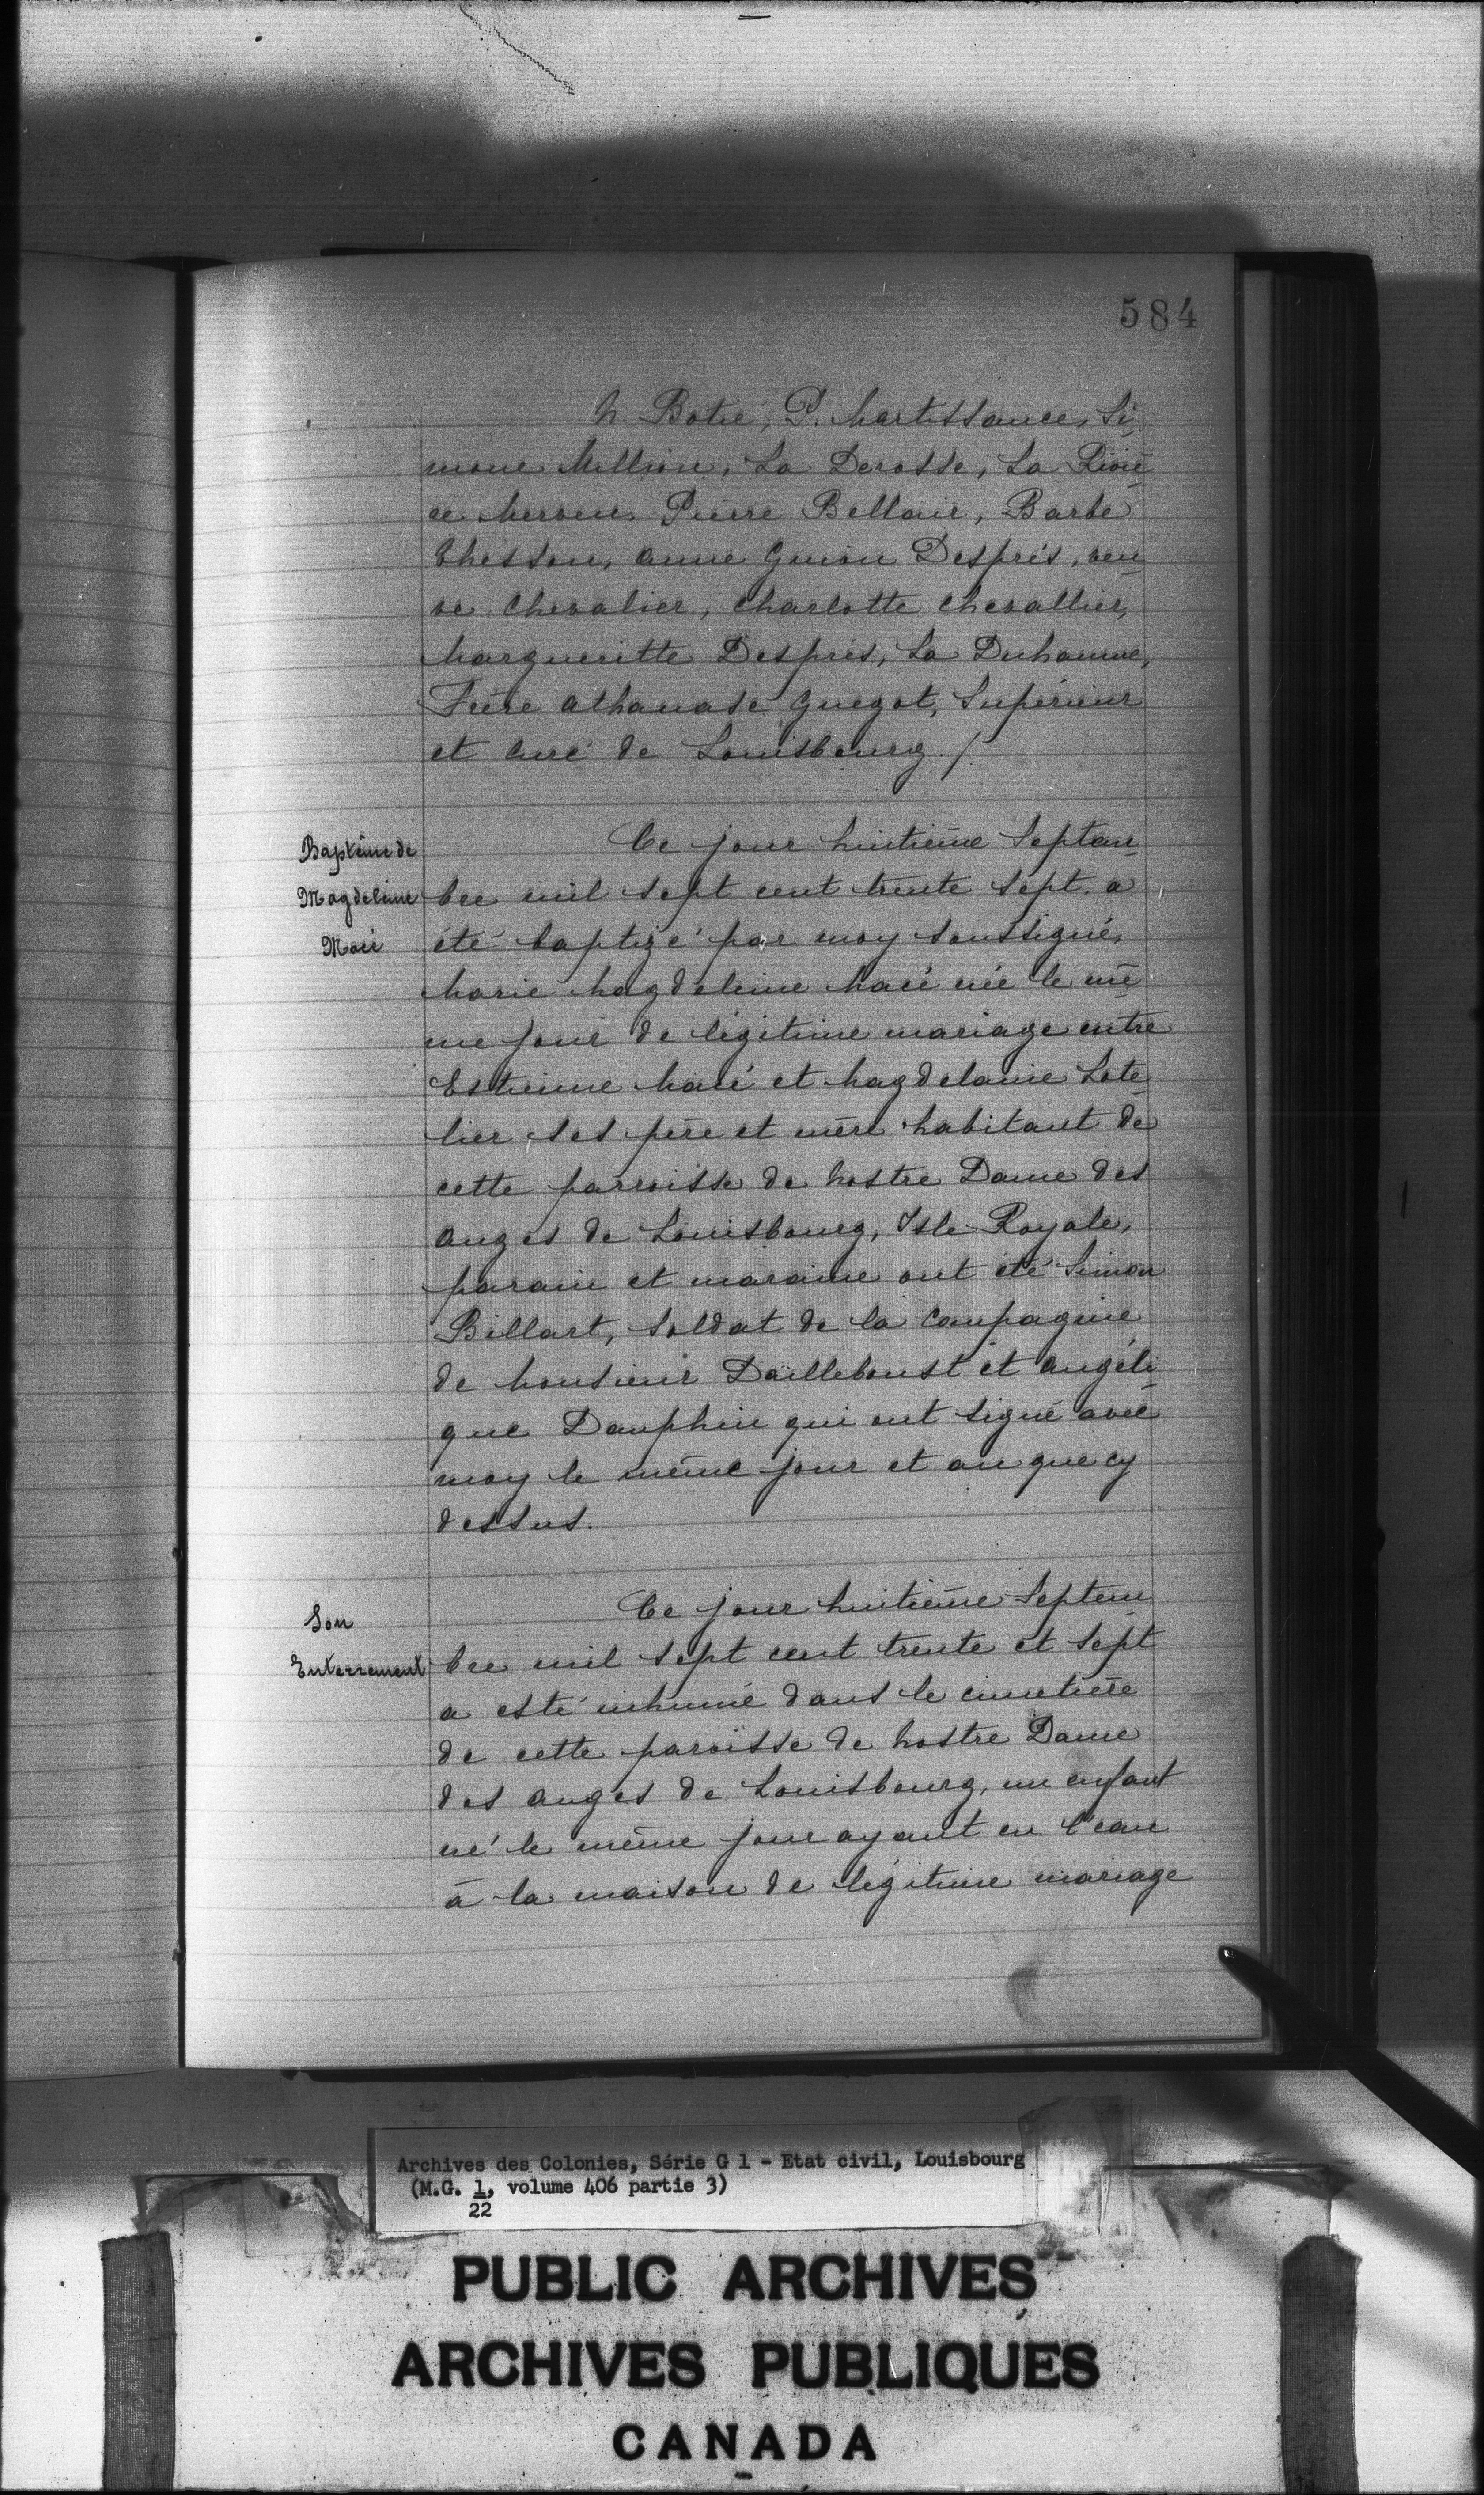 584
N. Botié, P. Martissance, Si-
mone Million, La Derosse, La Riviè-
re Merven, Pierre Bellair, Barbe
Chesson, Anne Guion Després, veu-
ve Chevalier, Charlotte Chevallier,
Margueritte Després, La Duhamme,
Frère Athanase Guegot, Supérieur
et Curé de Louisbourg./.
Baptême de
Magdeleine
Macé
Ce jour huitième Septan-
bre mil sept cent trente sept. a
été baptizé par moy soussigné,
Marie Magdeleine Macé née le mê-
me jour de légitime mariage entre
Estienne Macé et Magdelaine Lote-
lier, ses père et mère habitant de
cette parroisse de Nostre Dame des
Anges de Louisbourg, Isle Royale,
parain et maraine ont été Simon
Billart, soldat de la Compagnie
de Monsieur Dailleboust et Angéli-
que Dauphin qui ont signé avec
moy le même jour et an que cy
dessus.
Son
Enterrement
Ce jour huitième Septem-
bre mil sept cent trente et sept
a esté inhumé dans le cimetière
de cette paroisse de Nostre Dame
des Anges de Louisbourg, un enfant
né le même jour ayant eu l'eau
à la maison de légitime mariage
Archives des Colonies, Série G 1 - Etat civil, Louisbourg
(M.G. 1, volume 406 partie 3)
22
PUBLIC ARCHIVES
ARCHIVES PUBLIQUES
CANADA